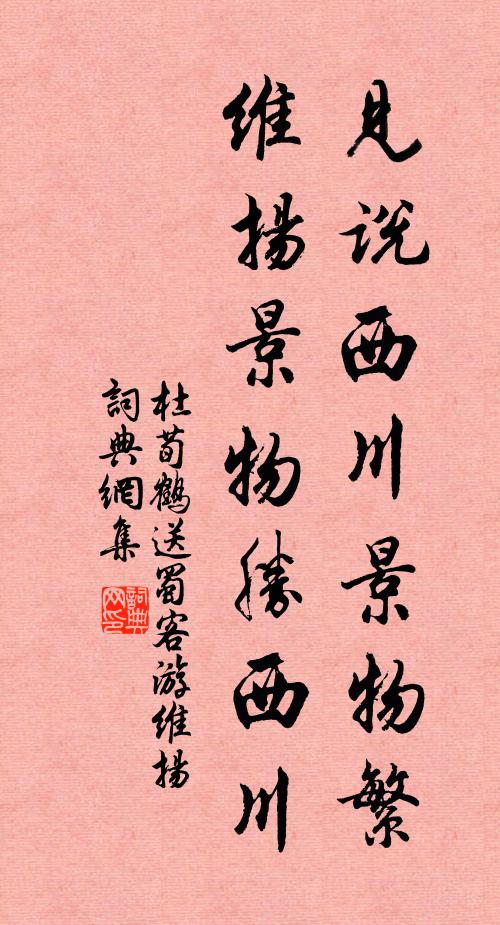 見説西川景物繁
維揚景物勝西川
杜荀鶴送蜀客游維揚
詞典網集
詞典網印